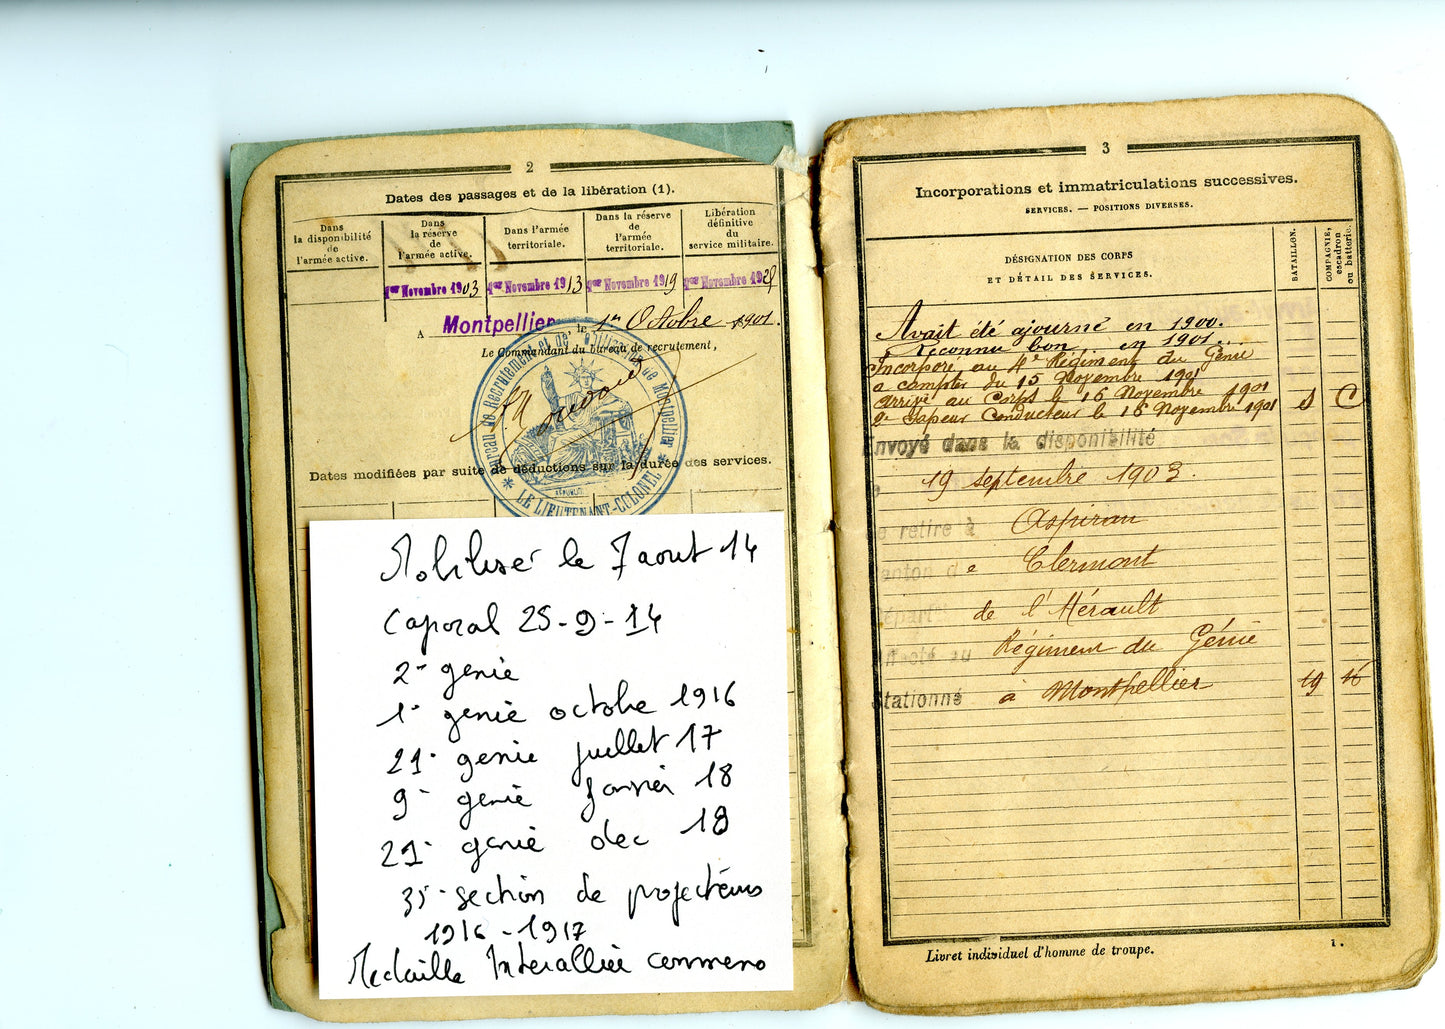 2
Dates des passages et de la libération (1).
Dans
la disponibilité
de
l'armée active.
Dans
la réserve
de
l'armée active.
Dans l'armée
territoriale.
Dans la réserve
de
l'armée
territoriale.
Libération
définitive
du
service militaire.
1er Novembre 1903
1er Novembre 1913
1er Novembre 1919
1er Novembre 192
A Montpellier, le 1er Octobre 1901.
Le Commandant du bureau de recrutement,
Bureau de Recrutement et de Mobilisation de Montpellier
* LE LIEUTENANT-COLONEL *
Dates modifiées par suite de déductions sur la durée des services.
Mobilisé le 7 aout 14
Caporal 25-9-14
2e genie
1e genie octobre 1916
21e genie juillet 17
9e genie janvier 18
21e genie dec 18
35e section de projecteurs
1916-1917
Medaille Interalliée commemo
3
Incorporations et immatriculations successives.
SERVICES. — POSITIONS DIVERSES.
DÉSIGNATION DES CORPS
ET DÉTAIL DES SERVICES.
BATAILLON.
COMPAGNIE,
escadron
ou batterie.
Avait été ajourné en 1900.
Reconnu bon en 1901...
Incorporé au 4e Régiment du Génie
a compter du 15 Novembre 1901
arrivé au Corps le 16 Novembre 1901
2e Sapeur Conducteur le 16 Novembre 1901 S C
Envoyé dans la disponibilité
19 septembre 1903.
Se retire à Aspiran
Canton de Clermont
Départ de l'Hérault
Affecté au Régiment du Génie
Stationné à Montpellier 19 16
Livret individuel d'homme de troupe.
1.